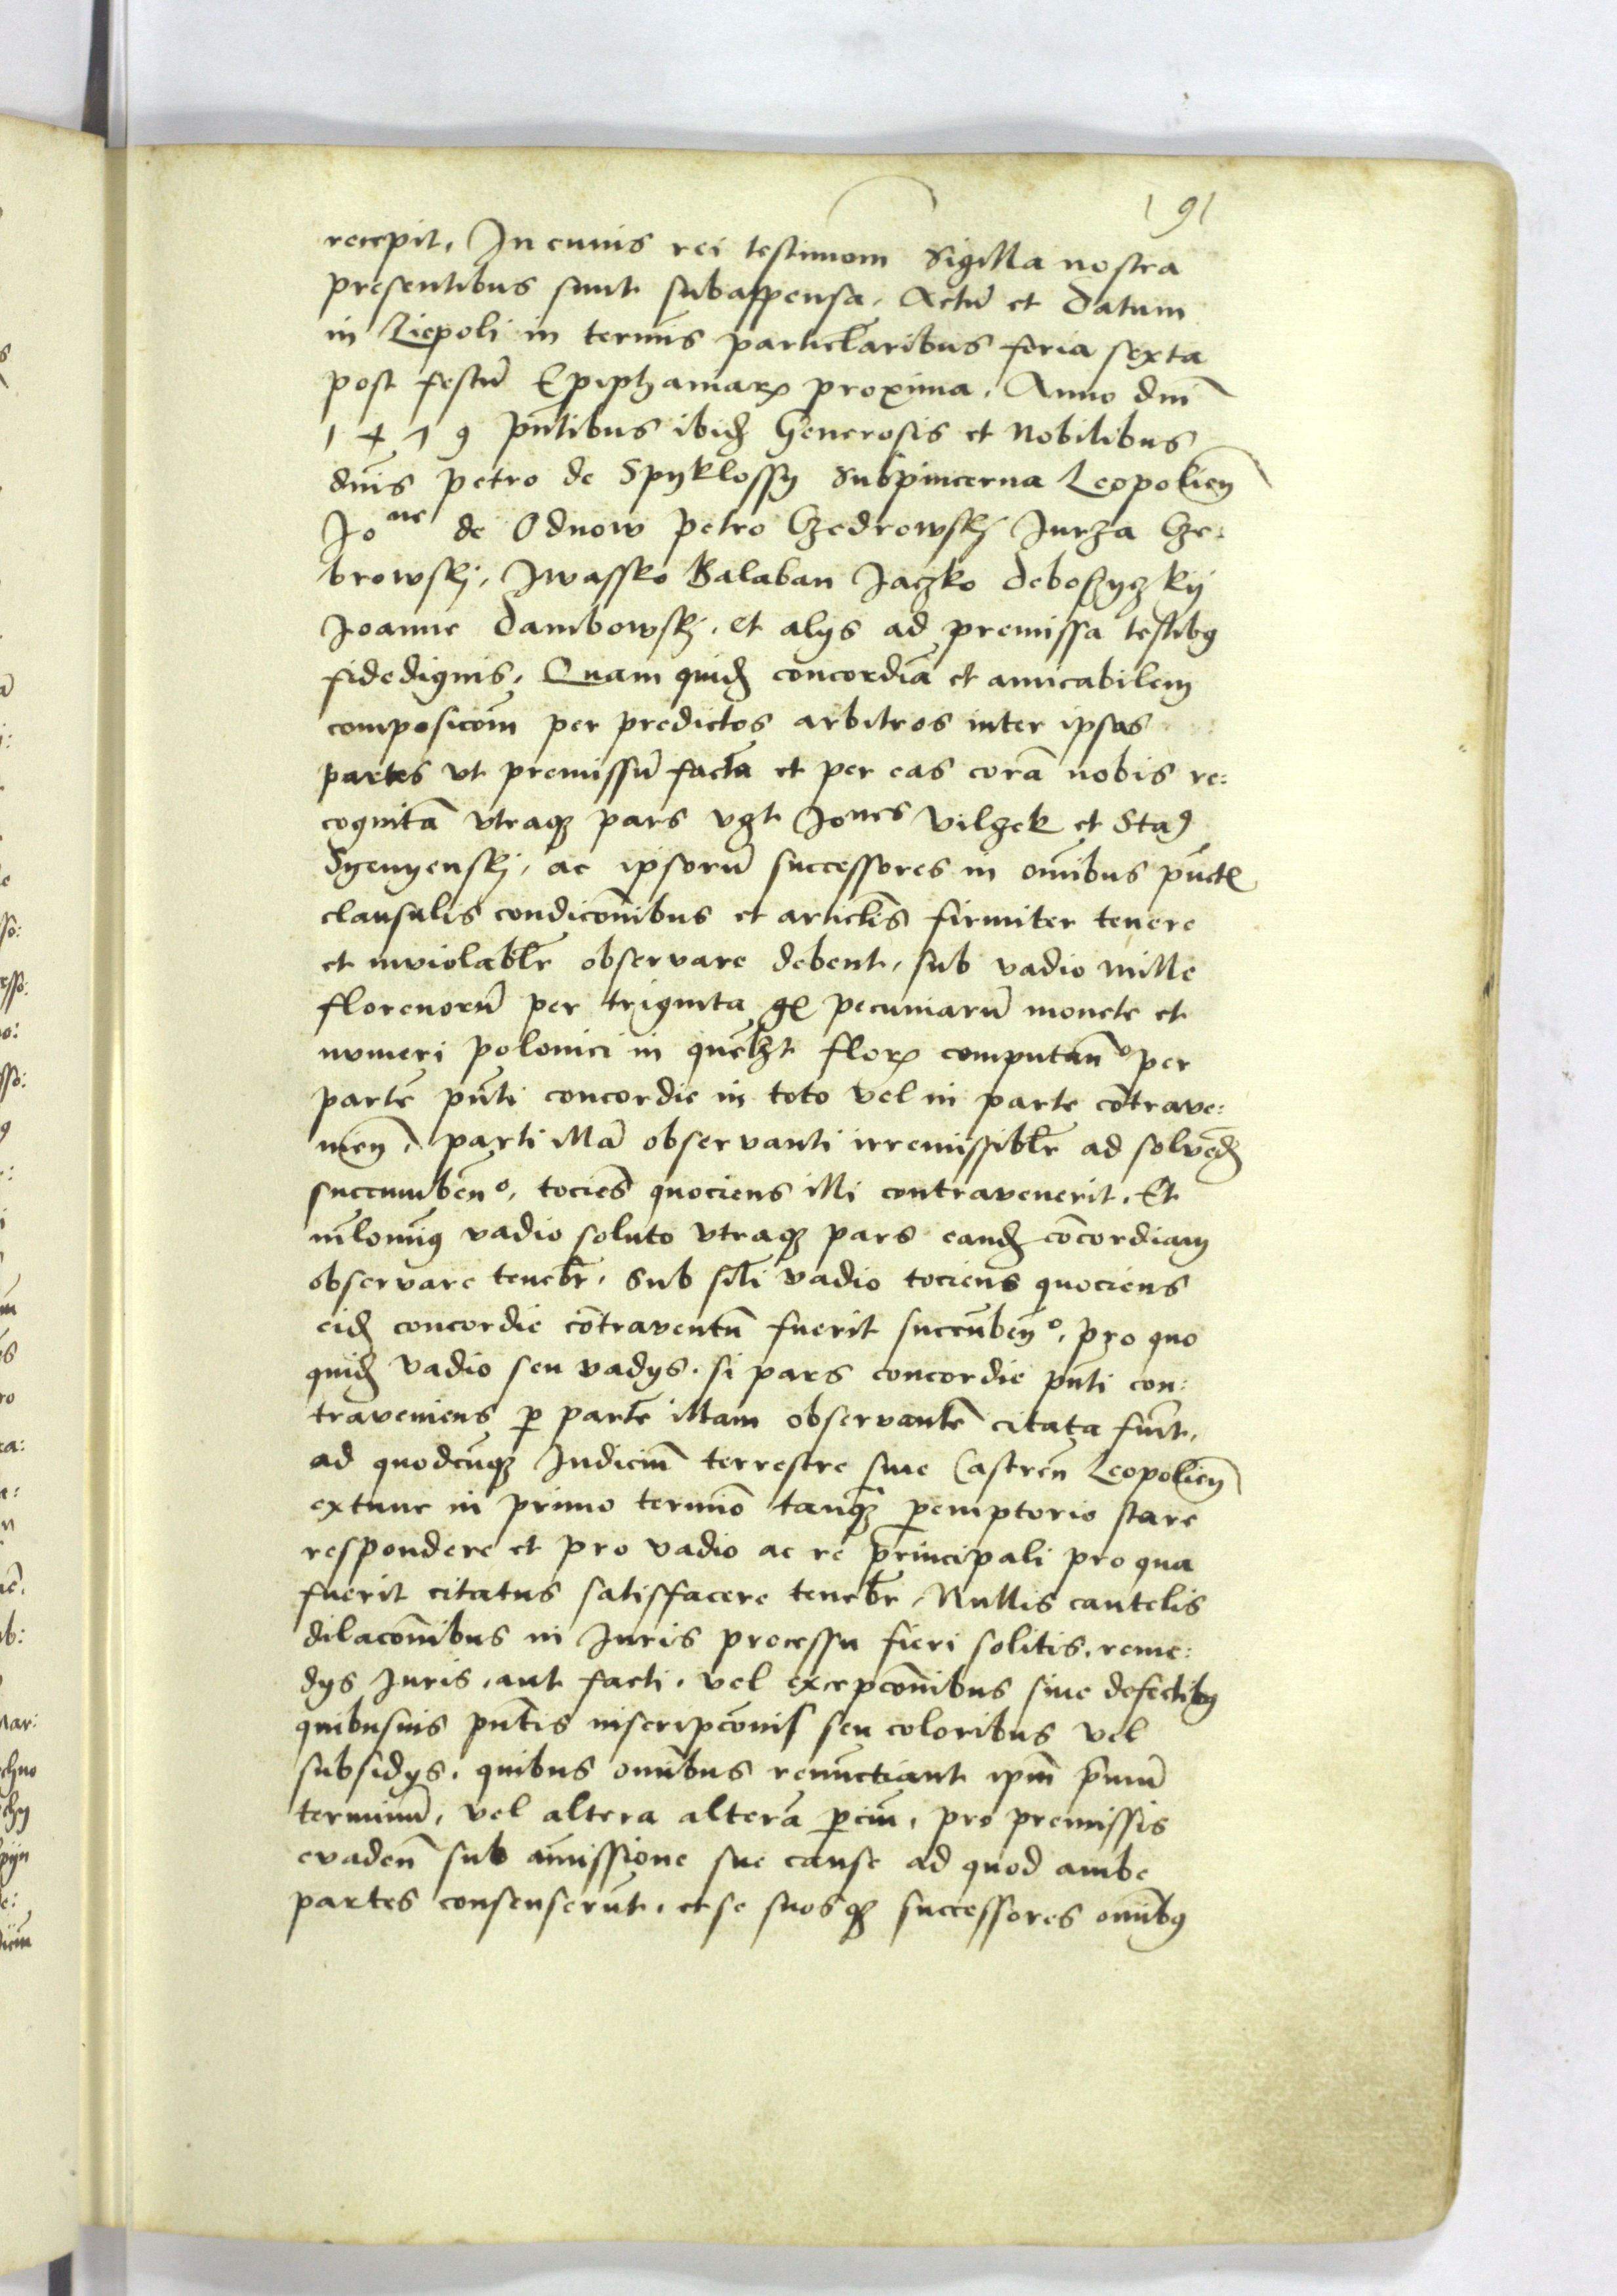 191
recepit. In cuius rei testimom̄ Sigilla nostra
presentibus sunt subappensa. Actū et datum
in Liepoli in termīs particl̄aribus feria sexta
post festū Epiphaniaꝝ proxima. Anno dnī
1479 pn̄tibus ibid̄ Generosis et Nobilibus
dnīs petro de Spyklossy Subpincerna Leopolien̄
Joⁿᵉ de Odnow petro Czedrowskj Jurza Cze:
browskj, Jwassko Balaban Jaczko
Joanne Dambowskj. et alys ad premissa testibꝯ
fidedignis, Quam quid̄ concordiā et amicabilem
composicom̄ per predictos arbitros inter ipsas
partes vt premissū factā et per eas corā nobis re:
cognitā vtraqꝫ pars vꝫt Joⁿᵉˢ Vilczek et Staꝯ
Syenyenskj, ac ipsorū successores in om̄ibus pūct
clausulis condicōnibus et articlīs firmiter tenere
et inviolabl̄r observare debent, sub vadio mille
florenorū per triginta gͬ pecuniarū monete et
numeri polonici in quēlꝫt floꝝ computan̄º per
partē pn̄ti concordie in toto vel in parte cōtrave:
nien̄, parti illā observanti irremissibl̄r ad solvēd̄
succumben̄º, tociēs quociens illi contravenerit. Et
nīlominꝯ vadio soluto vtraqꝫ pars eand̄ cōcordiam
observare tenebr̄. Sub sil̄i vadio tociens quociens
eid̄ concordie cōtraventū fuerit succūben̄º, pro quo
quid̄ vadio seu vadys. si pars concordie pn̄ti con:
traveniens ꝑ partē illam observantē citata fuīt,
ad quodcūqꝫ Judiciū terrestre sive Castren̄ Leopolien̄
extunc in primo termīo tanqꝫ̄ ꝑemptorio stare
respondere et pro vadio ac re principali pro qua
fuerit citatus satisfacere tenebr̄, Nullis cautelis
dilacōnibus in Juris processu fieri solitis, reme:
dys Juris, aut facti, vel excepcōnibus sive defectibꝯ
quibusvis pn̄tis inscripcōnis seu coloribus vel
subsidys, quibus om̄ibus renūctiant ipm̄ pīmū
terminū, vel altera alterā ꝑciū, pro premissis
evaden̄ sub amissione sue cause ad quod ambe
partes consenserūt, et se suosqꝫ successores om̄ibꝯ